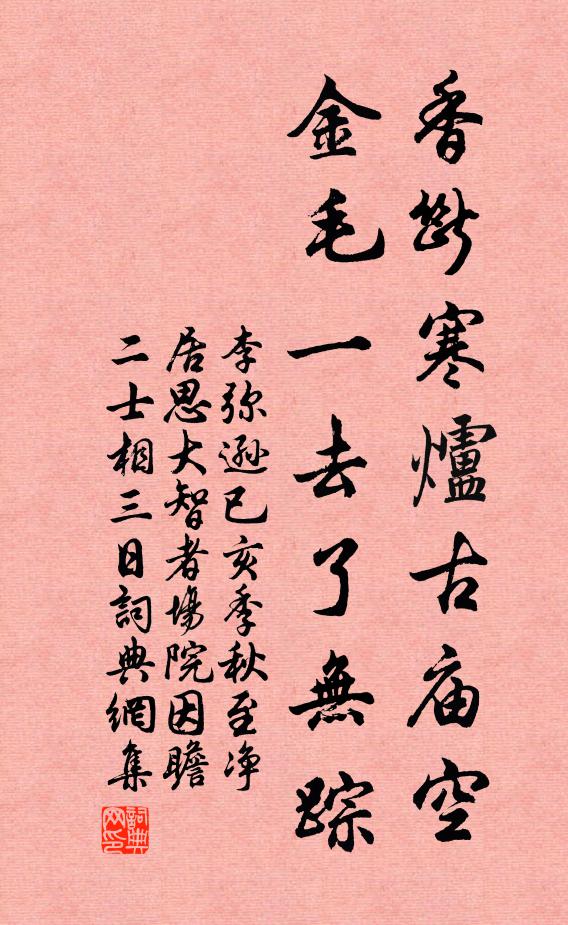 香斷寒爐古庙空
金毛一去了無踪
李弥遜已亥季秋至净
居思大智者場院因瞻
二士相三日詞典網集
詞典网印